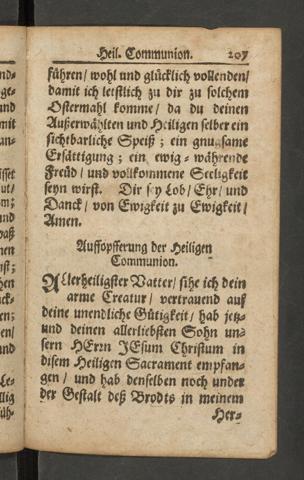 Heil. Communion. 207
führen/ wohl und glücklich vollenden/
damit ich letstlich zu dir zu solchem
Ostermahl komme/ da du deinen
Außerwählten und Heiligen selber ein
sichtbarliche Speiß; ein gnugsame
Ersättigung; ein ewig-währende
Freüd/ und vollkommene Seeligkeit
seyn wirst. Dir sey Lob/ Ehr/ und
Danck/ von Ewigkeit zu Ewigkeit/
Amen.
Auffopfferung der Heiligen
Communion.
ALlerheiligster Vatter/ sihe ich dein
arme Creatur/ vertrauend auff
deine unendliche Gütigkeit/ hab jetz-
und deinen allerliebsten Sohn un-
sern HErrn JEsum Christum in
disem Heiligen Sacrament empfan-
gen/ und hab denselben noch under
der Gestalt deß Brodts in meinem
Her-